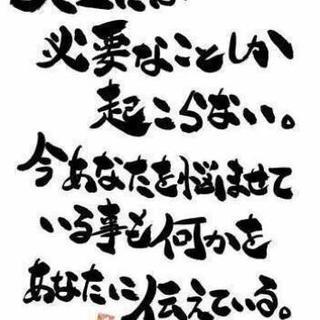 必要なことしか
起こらない。
今あなたを悩ませて
いる事も何かを
あなたに伝えている。